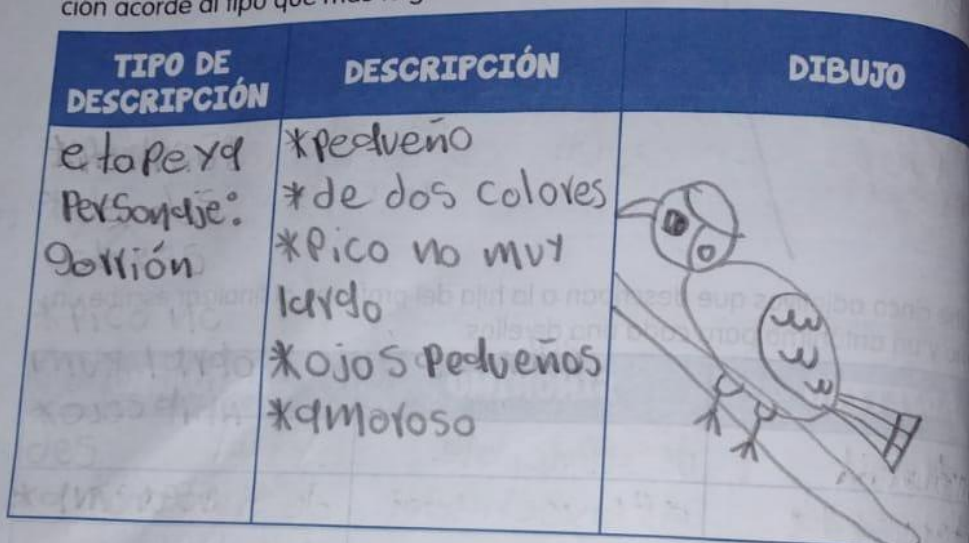 ción acorde al tipo que
TIPO DE DESCRIPCIÓN
DESCRIPCIÓN
DIBUJO
etopeya
Personaje:
gorrión
*pequeño
*de dos colores
*Pico no muy
largo
*ojos pequeños
*amoroso